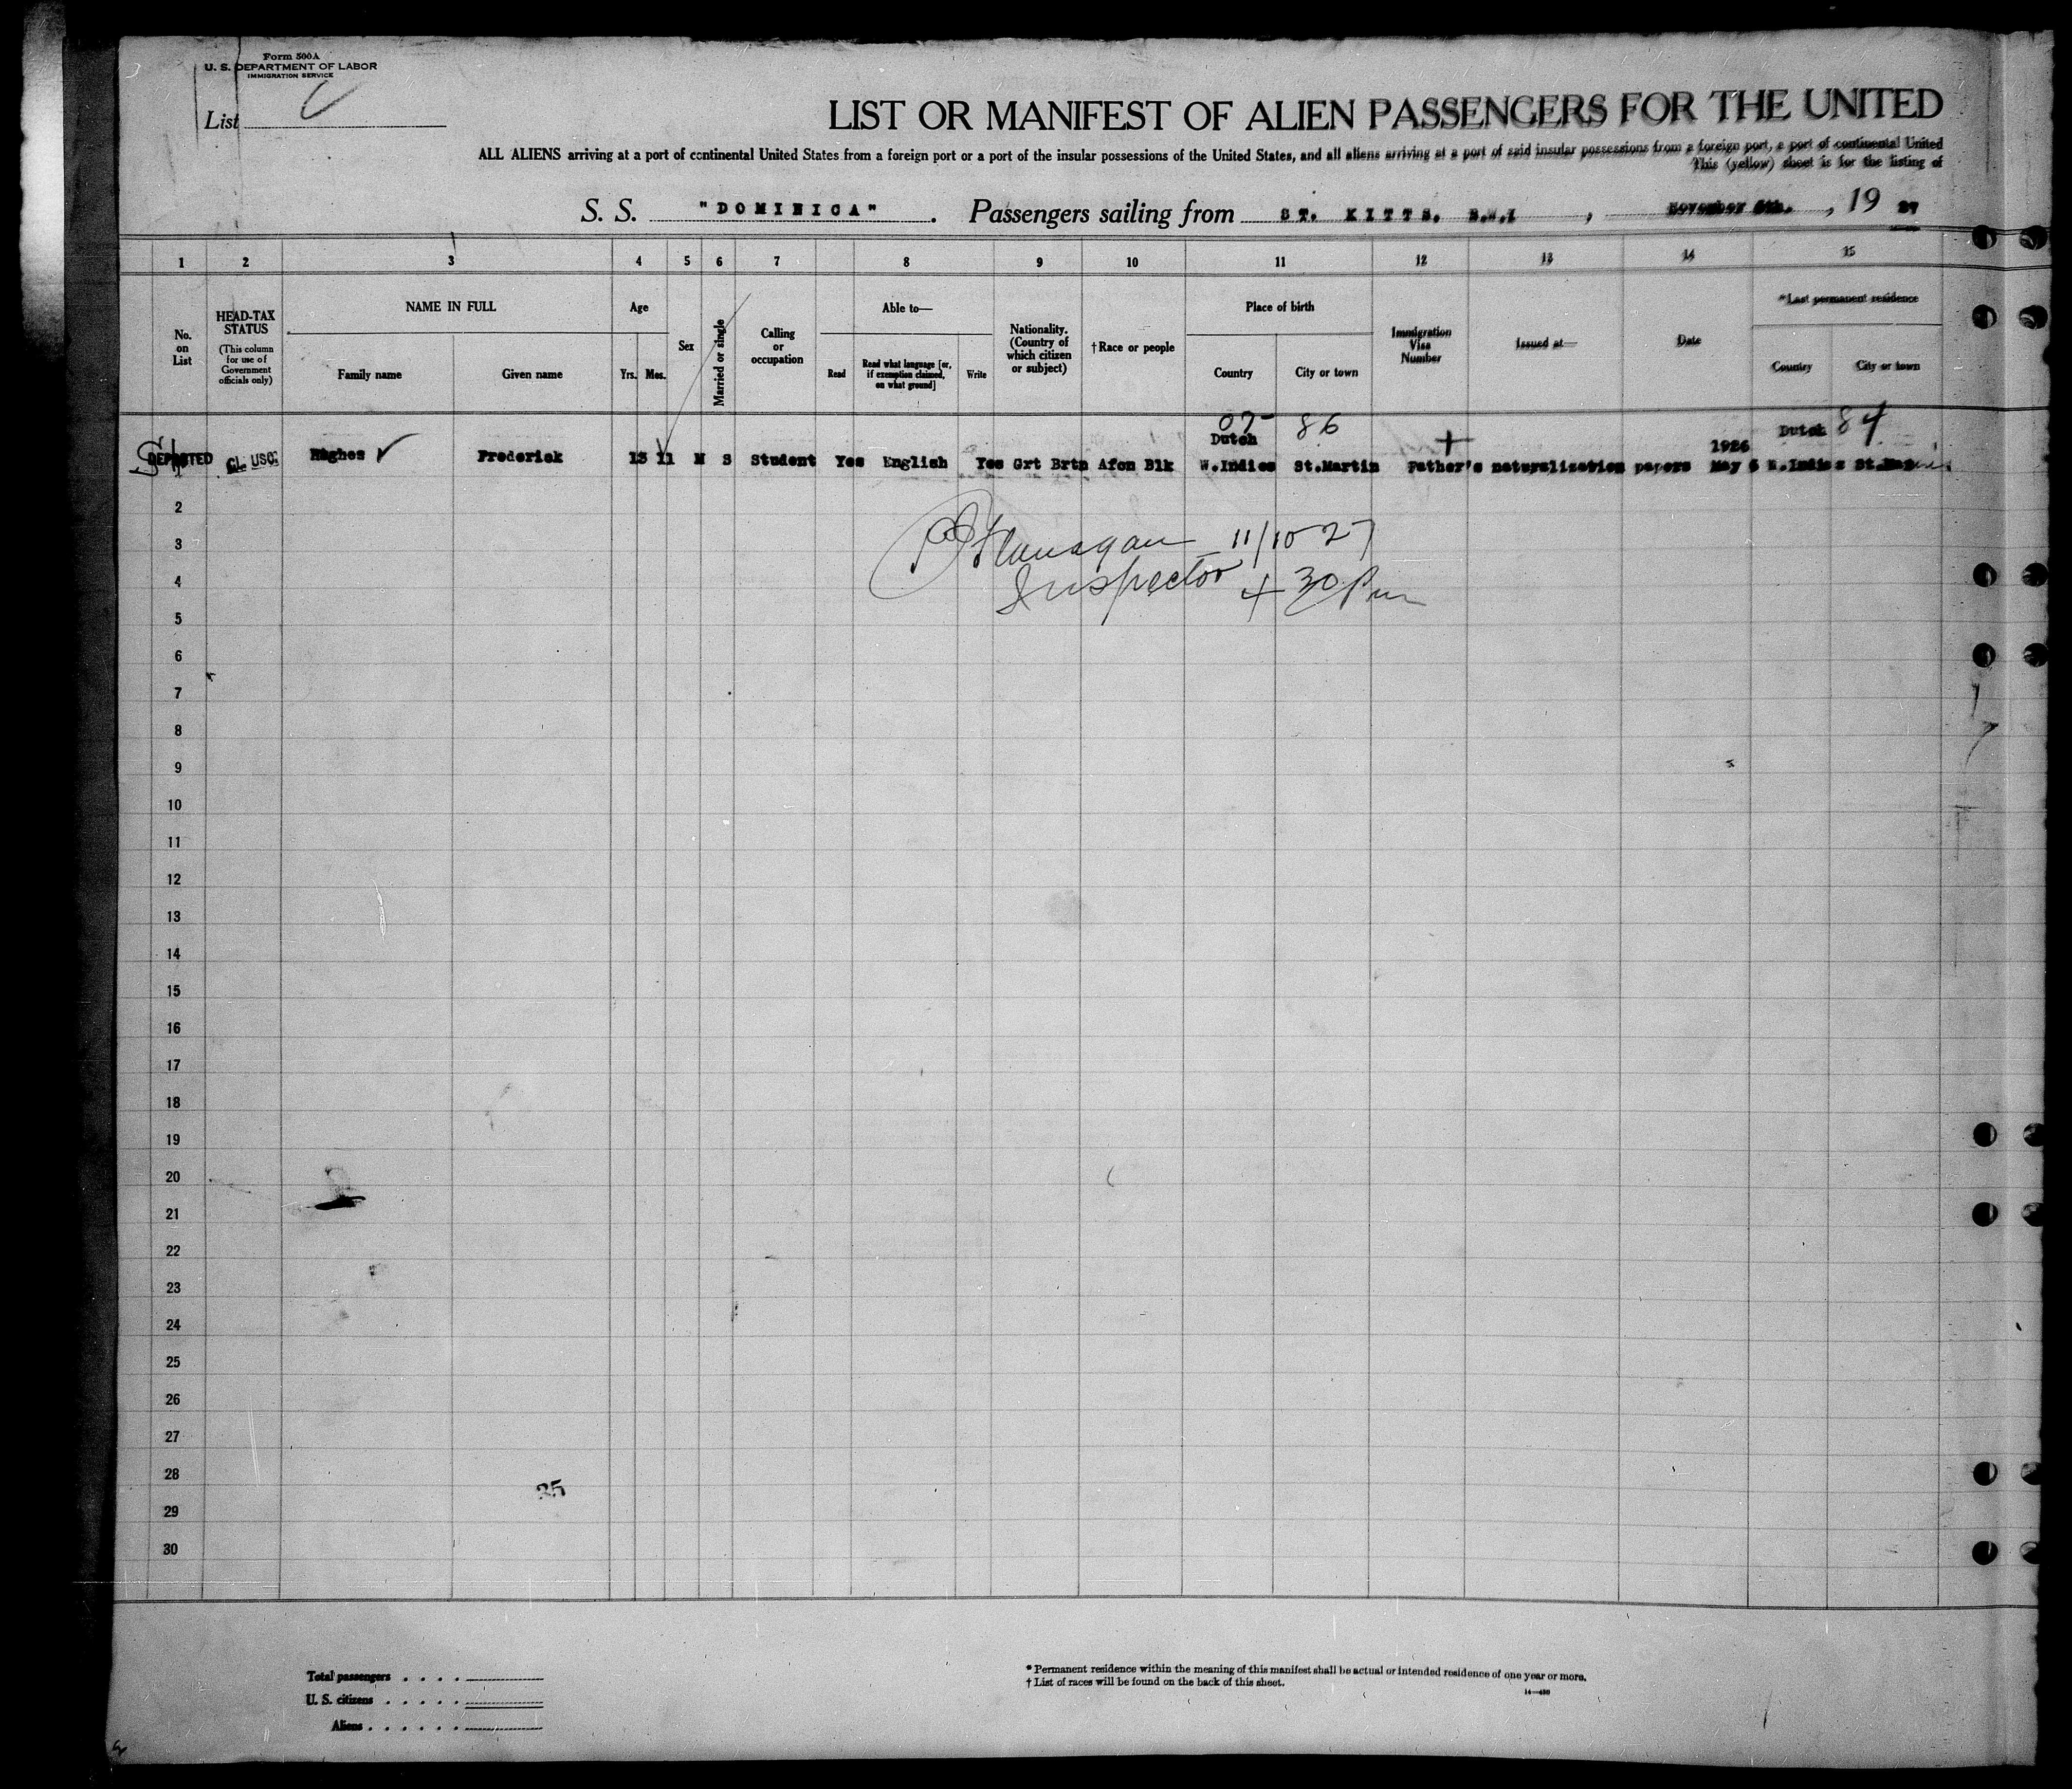 Form 500A
U. S. DEPARTMENT OF LABOR
IMMIGRATION SERVICE
List
LIST OR MANIFEST OF ALIEN PASSENGERS FOR THE UNITED
ALL ALIENS arriving at a port of continental United States from a foreign port or a port of the insular possessions of the United States, and all aliens arriving at a port of said insular possessions from a foreign port, a port of continental United
This (yellow) sheet is for the listing of
S. S. "DOMINICA" . Passengers sailing from ST. KITTS. B.W.I , November 5th. , 19 27
1 2 3 4 5 6 7 8 9 10 11 12 13 14 15
No. on List
HEAD-TAX STATUS (This column for use of Government officials only)
NAME IN FULL
Family name Given name
Age
Yrs. Mos.
Sex
Married or single
Calling or occupation
Able to—
Read Read what language [or, if exemption claimed, on what ground] Write
Nationality. (Country of which citizen or subject)
†Race or people
Place of birth
Country City or town
Immigration Visa Number
Issued at—
Date
*Last permanent residence
Country City or town
07- 86 84
Dutch 1926 Dutch
DEPORTED CL. USC. Hughes ✓ Frederick 13 11 M S Student Yes English Yes Grt Brtn Afcn Blk W.Indies St.Martin Father's naturalization papers May 5 W.Indies St.
Flanagan 11/10 27
Inspector 4 30 Pm
2
3
4
5
6
7
8
9
10
11
12
13
14
15
16
17
18
19
20
21
22
23
24
25
26
27
28
35
29
30
Total passengers . . . .
U. S. citizens . . . . .
Aliens . . . . . .
* Permanent residence within the meaning of this manifest shall be actual or intended residence of one year or more.
† List of races will be found on the back of this sheet.
14—430